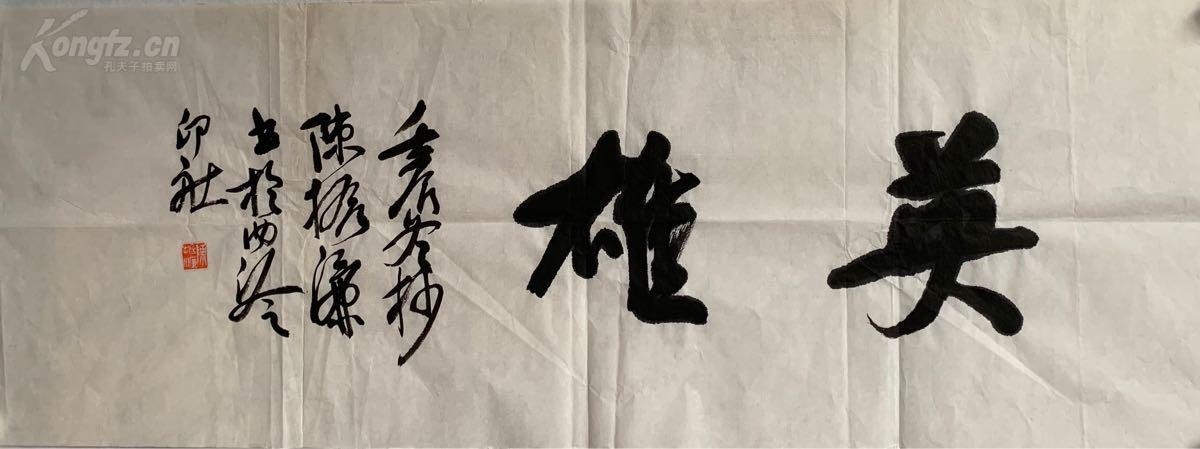 英雄
陈振濂
书于西泠
印社
Kongfz.cn
孔夫子拍卖网